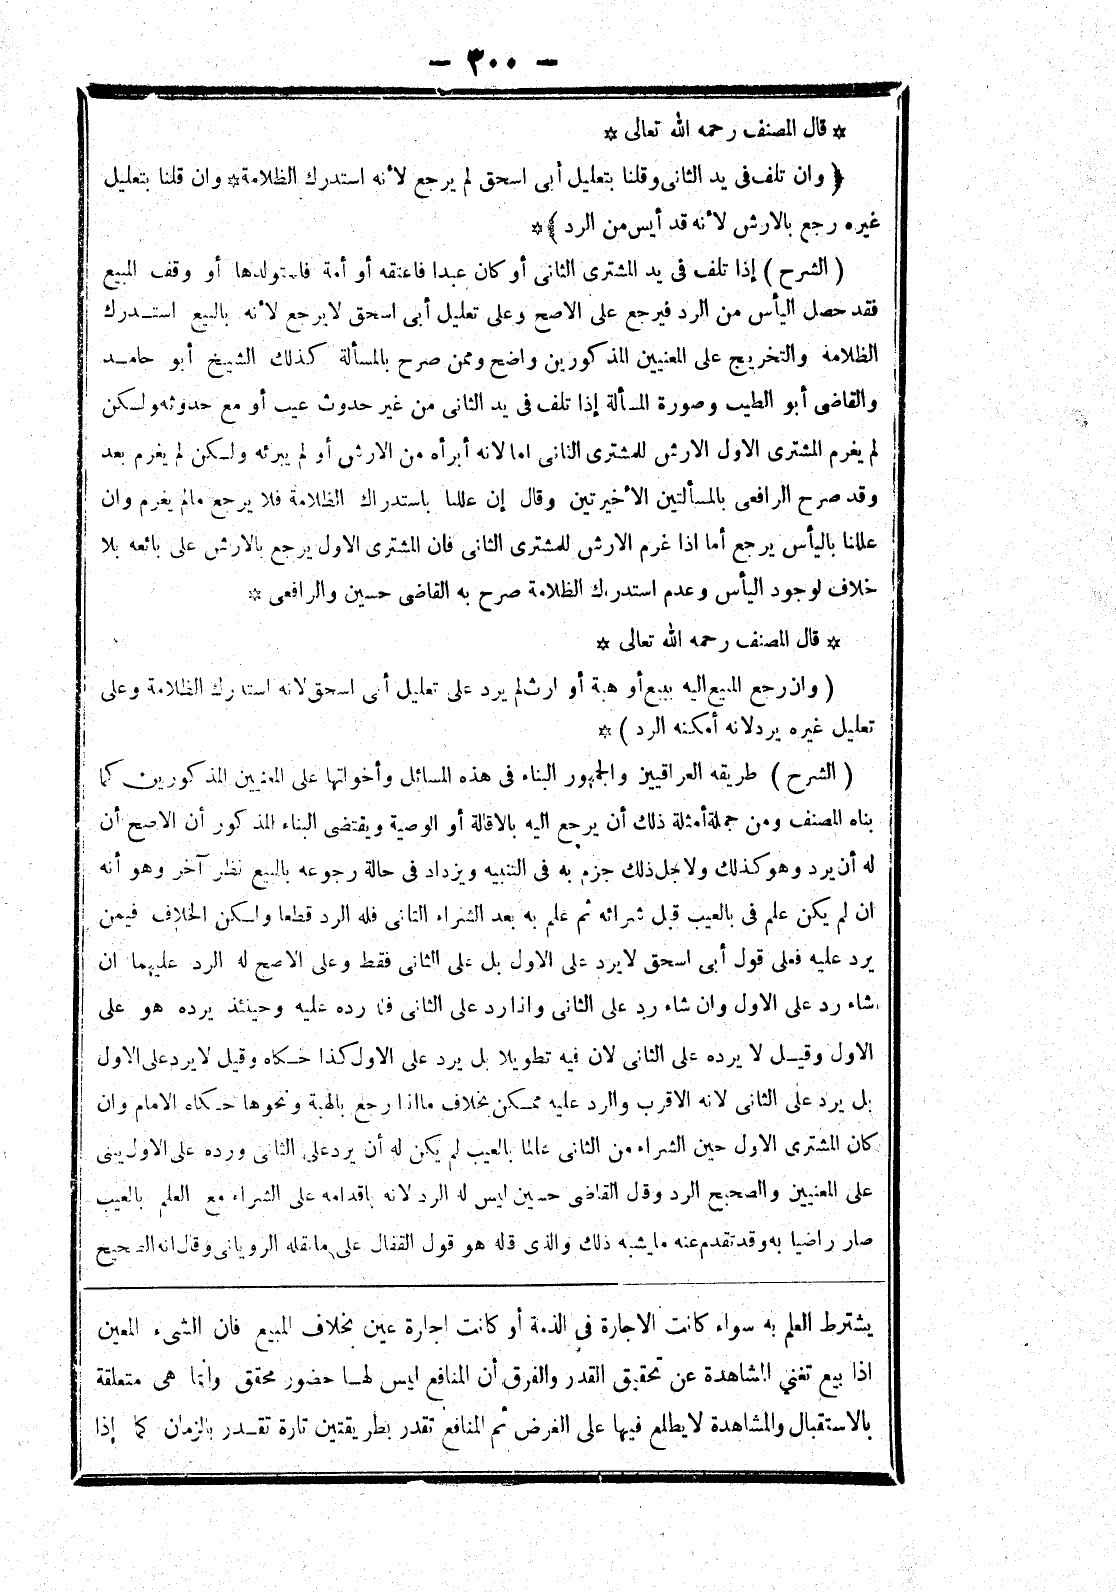 — ٣٠٠ —
* قال المصنف رحمه الله تعالى *
﴿ وان تلف فى يد الثانى وقلنا بتعليل أبى اسحق لم يرجع لأنه استدرك الظلامة * وان قلنا بتعليل
غيره رجع بالارش لأنه قد أيس من الرد ﴾ *
( الشرح ) إذا تلف فى يد المشترى الثانى أو كان عبدا فاعتقه أو أمة فاستولدها أو وقف المبيع
فقد حصل اليأس من الرد فيرجع على الاصح وعلى تعليل أبى اسحق لايرجع لأنه بالبيع استدرك
الظلامة والتخريج على المعنيين المذكورين واضح وممن صرح بالمسألة كذلك الشيخ أبو حامد
والقاضى أبو الطيب وصورة المسألة إذا تلف فى يد الثانى من غير حدوث عيب أو مع حدوثه ولكن
لم يغرم المشترى الاول الارش للمشترى الثانى اما لانه أبرأه من الارش أو لم يبرئه ولكن لم يغرم بعد
وقد صرح الرافعى بالمسألتين الأخيرتين وقال إن عللنا باستدراك الظلامة فلا يرجع مالم يغرم وان
عللنا باليأس يرجع أما اذا غرم الارش للمشترى الثانى فان المشترى الاول يرجع بالارش على بائعه بلا
خلاف لوجود اليأس وعدم استدراك الظلامة صرح به القاضى حسين والرافعى *
* قال المصنف رحمه الله تعالى *
( وان رجع المبيع اليه ببيع أو هبة أو ارث لم يرد على تعليل أبى اسحق لانه استدرك الظلامة وعلى
تعليل غيره يرد لانه أمكنه الرد ) *
( الشرح ) طريقه العراقيين والجمهور البناء فى هذه المسائل وأخواتها على المعنيين المذكورين كما
بناه المصنف ومن جملة أمثلة ذلك أن يرجع اليه بالاقالة أو الوصية ويقتضى البناء المذكور أن الاصح أن
له أن يرد وهو كذلك ولاجل ذلك جزم به فى التنبيه ويزداد فى حالة رجوعه بالبيع نظر آخر وهو أنه
ان لم يكن علم فى بالعيب قبل شرائه ثم علم به بعد الشراء الثانى فله الرد قطعا ولكن الخلاف فيمن
يرد عليه فعلى قول أبى اسحق لايرد على الاول بل على الثانى فقط وعلى الاصح له الرد عليهما ان
شاء رد على الاول وان شاء رد على الثانى واذا رد على الثانى فله رده عليه وحينئذ يرده هو على
الاول وقيل لا يرده على الثانى لان فيه تطويلا بل يرد على الاول كذا حكاه وقيل لا يرد على الاول
بل يرد على الثانى لانه الاقرب والرد عليه ممكن بخلاف ما اذا رجع بالهبة ونحوها حكاه الامام وان
كان المشترى الاول حين الشراء من الثانى عالما بالعيب لم يكن له أن يرد على الثانى ورده على الاول يبنى
على المعنيين والصحيح الرد وقل القاضى حسين ليس له الرد لانه باقدامه على الشراء مع العلم بالعيب
صار راضيا به وقد تقدم عنه مايشبه ذلك والذى قله هو قول القفال على مانقله الرويانى وقال انه الصحيح
يشترط العلم به سواء كانت الاجارة في الذمة أو كانت اجارة عين بخلاف المبيع فان الشىء المعين
اذا بيع تغني المشاهدة عن تحقيق القدر والفرق أن المنافع ليس لها حضور محقق وانما هى متعلقة
بالاستقبال والمشاهدة لايطلع فيها على الغرض ثم المنافع تقدر بطريقتين تارة تقدر بالزمان كما إذا